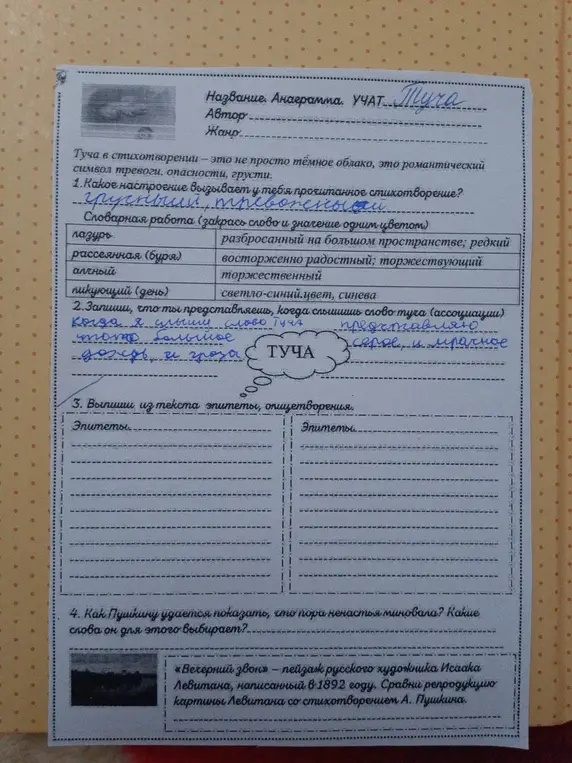 Название. Анаграмма. УЧАТ Туча
Автор
Жанр
Туча в стихотворении – это не просто тёмное облако, это романтический
символ тревоги, опасности, грусти.
1. Какое настроение вызывает у тебя прочитанное стихотворение?
грустный, тревожный
Словарная работа (закрась слово и значение одним цветом)
лазурь разбросанный на большом пространстве; редкий
рассеянная (буря) восторженно радостный; торжествующий
алчный торжественный
ликующий (день) светло-синий цвет, синева
2. Запиши, что ты представляешь, когда слышишь слово туча (ассоциации)
когда я слышу слово туча представляю
что то большое серое, и мрачное
дождь, и гроза
ТУЧА
3. Выпиши из текста эпитеты, олицетворения.
Эпитеты Эпитеты
4. Как Пушкину удается показать, что пора ненастья миновала? Какие
слова он для этого выбирает?
«Вечерний звон» – пейзаж русского художника Исаака
Левитана, написанный в 1892 году. Сравни репродукцию
картины Левитана со стихотворением А. Пушкина.